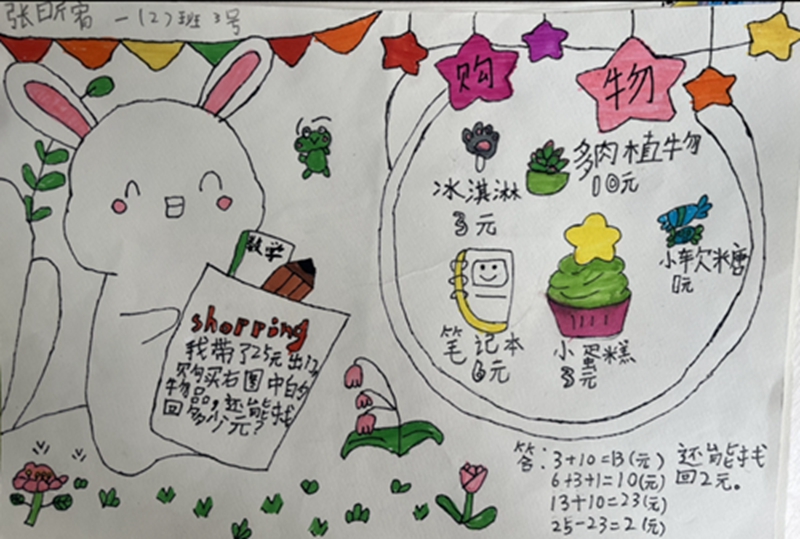 张昕宥 一(2)班 3号
购 物
冰淇淋
3元
多肉植物
10元
小软糖
1元
笔记本
6元
小蛋糕
3元
数学
shopping
我带了25元出门
购买右图中的
物品,还能找
回多少元?
答:3+10=13(元) 还能找
6+3+1=10(元) 回2元。
13+10=23(元)
25-23=2(元)